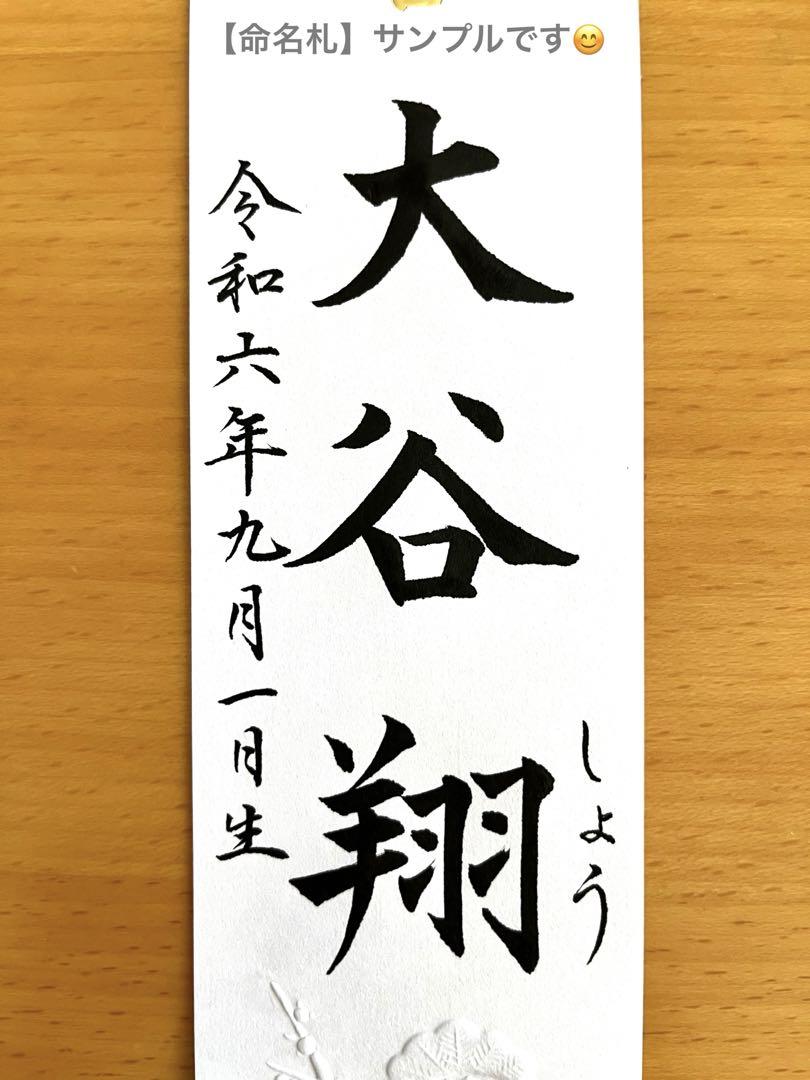 【命名札】サンプルです😊
大谷翔
しょう
令和六年九月一日生